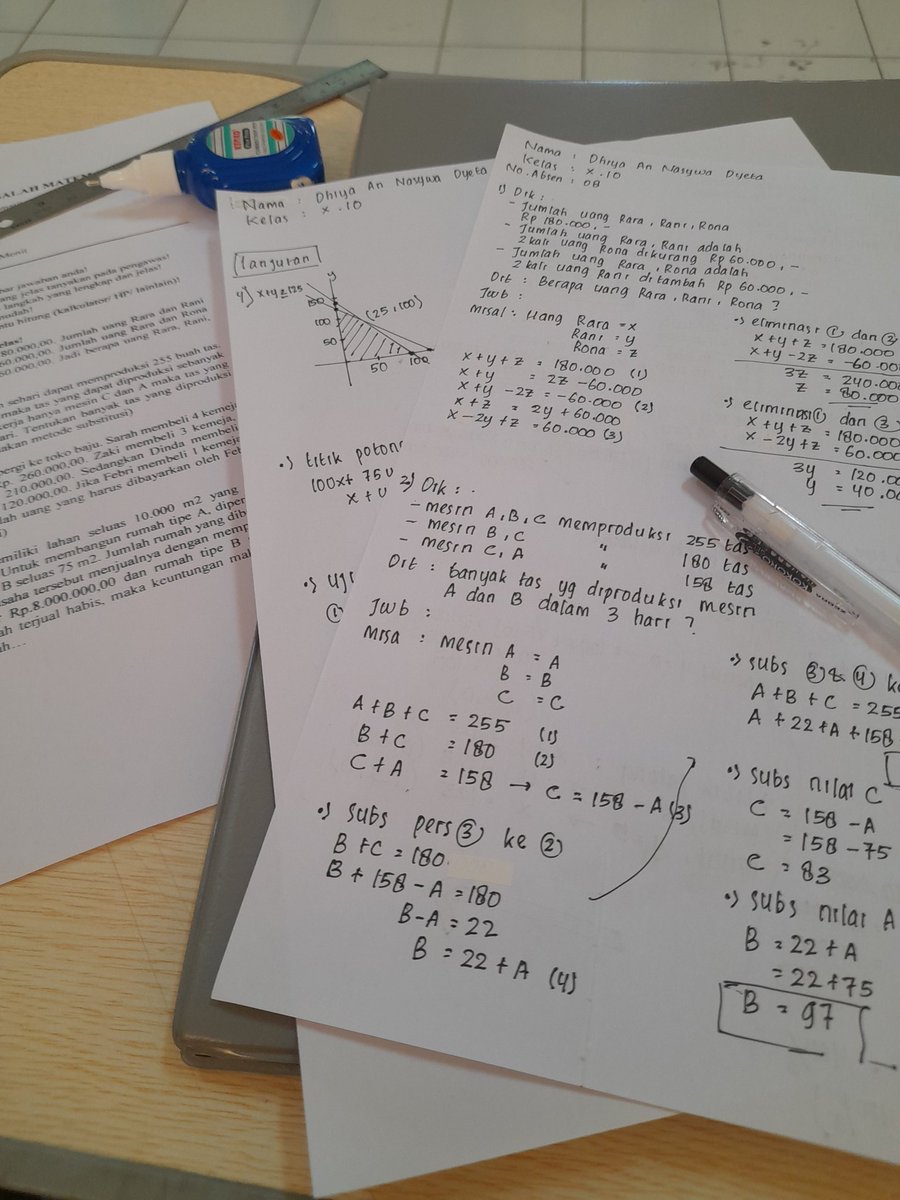 Nama : Dhiya An Nasywa Dyeta
Kelas : X.10
No. Absen : 08
1) Dik :
- Jumlah uang Rara, Rani, Rona
Rp 180.000,-
- Jumlah uang Rara, Rani adalah
2 kali uang Rona dikurang Rp 60.000,-
- Jumlah uang Rara, Rona adalah
2 kali uang Rani ditambah Rp 60.000,-
Dit : Berapa uang Rara, Rani, Rona ?
Jwb :
Misal : Uang Rara = x
Rani = y
Rona = z
x + y + z = 180.000 (1)
x + y = 2z - 60.000
x + y - 2z = -60.000 (2)
x + z = 2y + 60.000
x - 2y + z = 60.000 (3)
•) eliminasi ① dan ②
x + y + z = 180.000
x + y - 2z = -60.00
3z = 240.00
z = 80.000
•) eliminasi ① dan ③
x + y + z = 180.000
x - 2y + z = 60.000
3y = 120.00
y = 40.00
2) Dik :
- mesin A, B, C memproduksi 255 tas
- mesin B, C " 180 tas
- mesin C, A " 158 tas
Dit : banyak tas yg diproduksi mesin
A dan B dalam 3 hari ?
Jwb :
Misa : mesin A = A
B = B
C = C
A + B + C = 255 (1)
B + C = 180 (2)
C + A = 158 → C = 158 - A (3)
•) subs pers ③ ke ②
B + C = 180
B + 158 - A = 180
B - A = 22
B = 22 + A (4)
•) subs ③ & ④ ke
A + B + C = 255
A + 22 + A + 158
•) subs nilai C
C = 158 - A
= 158 - 75
C = 83
•) subs nilai A
B = 22 + A
= 22 + 75
B = 97
Nama : Dhiya An Nasywa Dyeta
Kelas : X.10
lanjutan
4) x + y ≥ 125
y
150
100
50
(25, 100)
50
100
•) titik poton
100x + 75
x +
•) uji
①
SALAH MATEM
jawaban anda!
yang jelas tanyakan pada pengawas!
langkah yang lengkap dan jelas!
mudah!
hitung (kalkulator/ HP/ lainlain)!
80.000,00. Jumlah uang Rara dan Rani
60.000,00. Jumlah uang Rara dan Rona
60.000,00. Jadi berapa uang Rara, Rani,
sehari dapat memproduksi 255 buah tas.
maka tas yang dapat diproduksi sebanyak
kerja hanya mesin C dan A maka tas yang
hari. Tentukan banyak tas yang diproduksi
metode substitusi)
pergi ke toko baju. Sarah membeli 4 kemeja
Rp. 260.000,00. Zaki membeli 3 kemeja,
210.000,00. Sedangkan Dinda membeli
120.000,00. Jika Febri membeli 1 kemeja
uang yang harus dibayarkan oleh Feb
memiliki lahan seluas 10.000 m2 yang
Untuk membangun rumah tipe A, diper
B seluas 75 m2. Jumlah rumah yang dib
tersebut menjualnya dengan memp
Rp.8.000.000,00 dan rumah tipe B
terjual habis, maka keuntungan mak